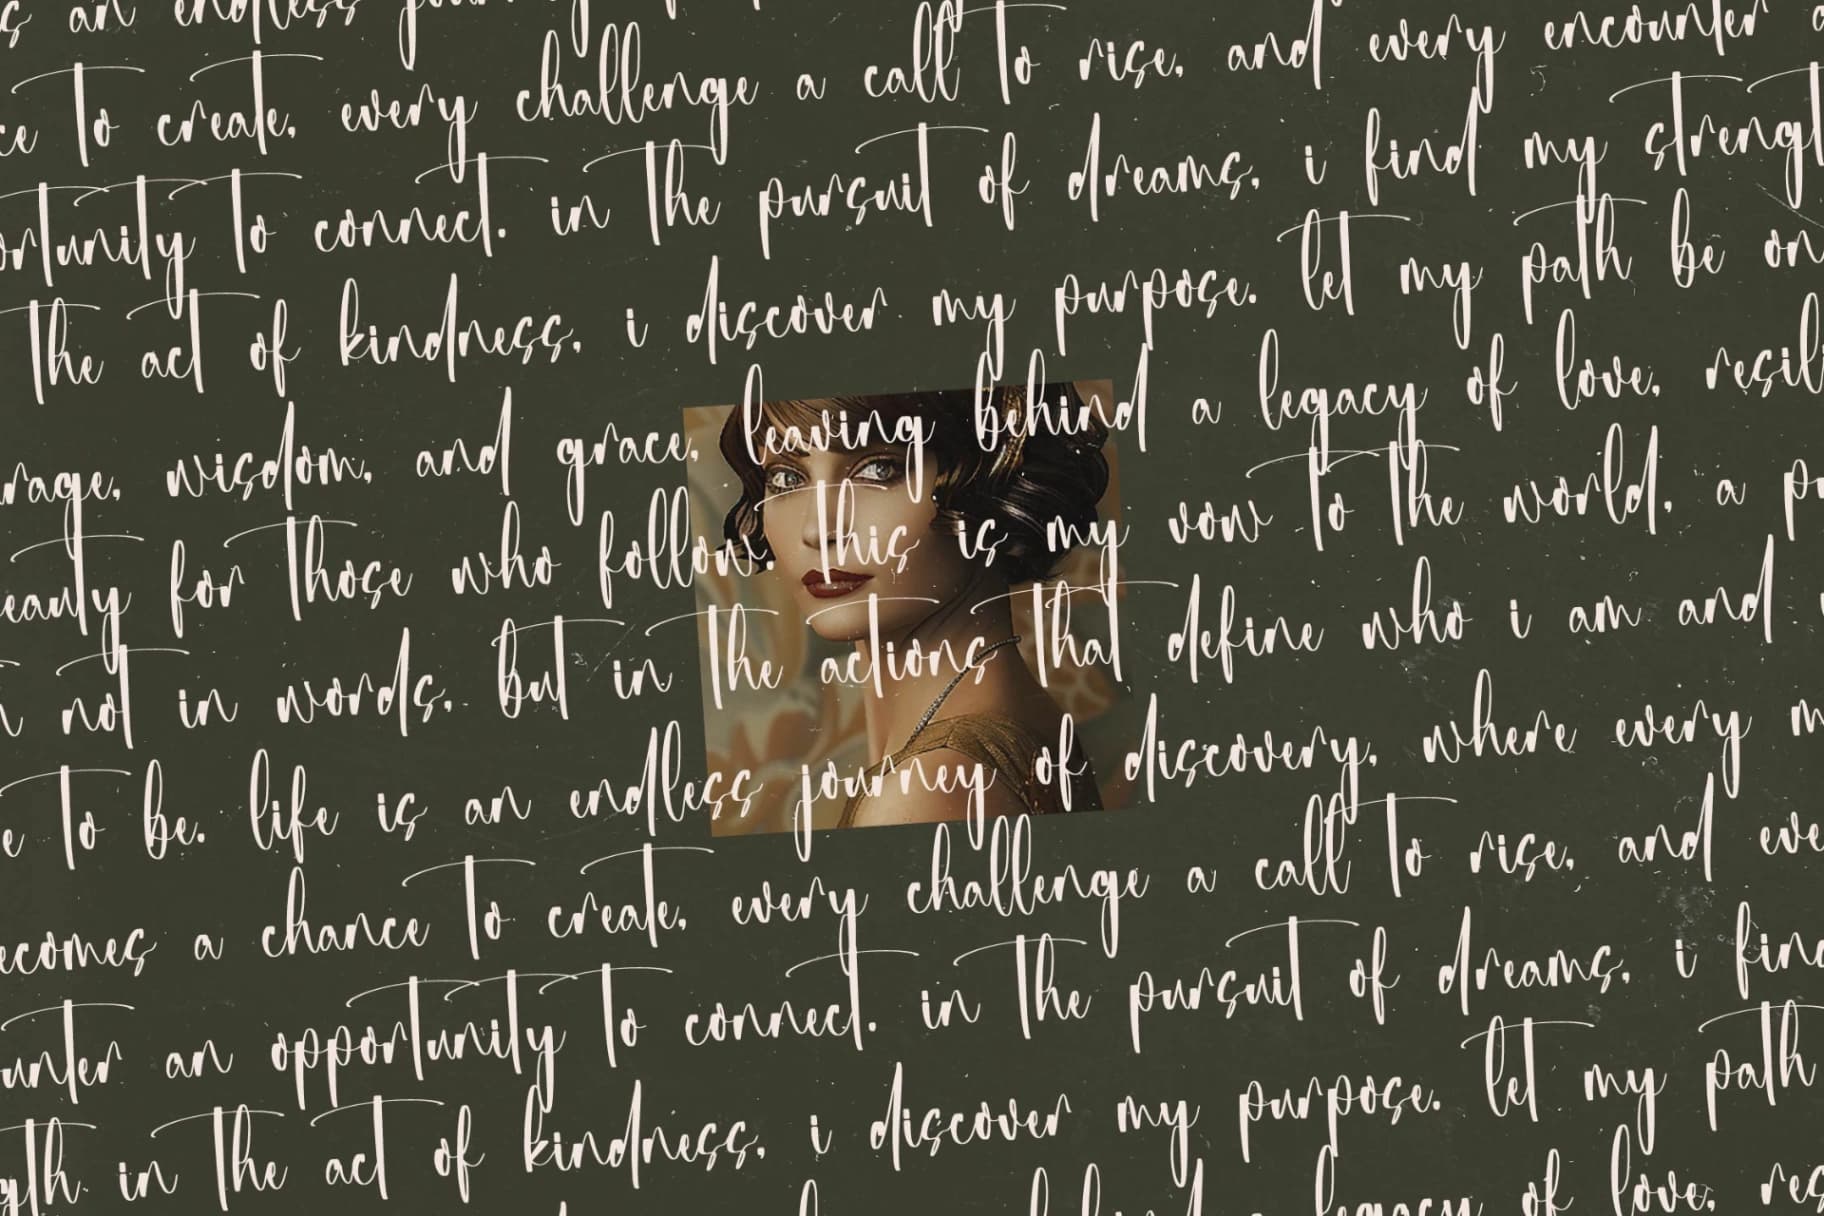 an endless
to create, every challenge a call to rise, and every encounter
to connect. in the pursuit of dreams, i find my
the act of kindness, i discover my purpose. let my path be
wisdom, and grace, leaving behind a legacy of love,
for those who follow. this is my vow to the world, a
not in words, but in the actions that define who i am and
to be. life is an endless journey of discovery, where every
a chance to create, every challenge a call to rise, and
an opportunity to connect. in the pursuit of dreams, i
in the act of kindness, i discover my purpose. let my path
legacy of love,